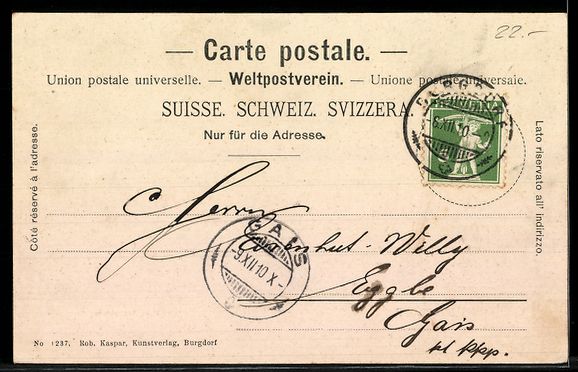 22.-
— Carte postale. —
Union postale universelle. — Weltpostverein. — Unione postale universale.
SUISSE. SCHWEIZ. SVIZZERA
Nur für die Adresse.
BURGDORF
6.XII.10
Côté réservé à l'adresse.
Lato riservato all' indirizzo.
Herrn
GAIS
9.XII.10 X-
Willy
Eggle
Gais
No 1237. Rob. Kaspar, Kunstverlag, Burgdorf